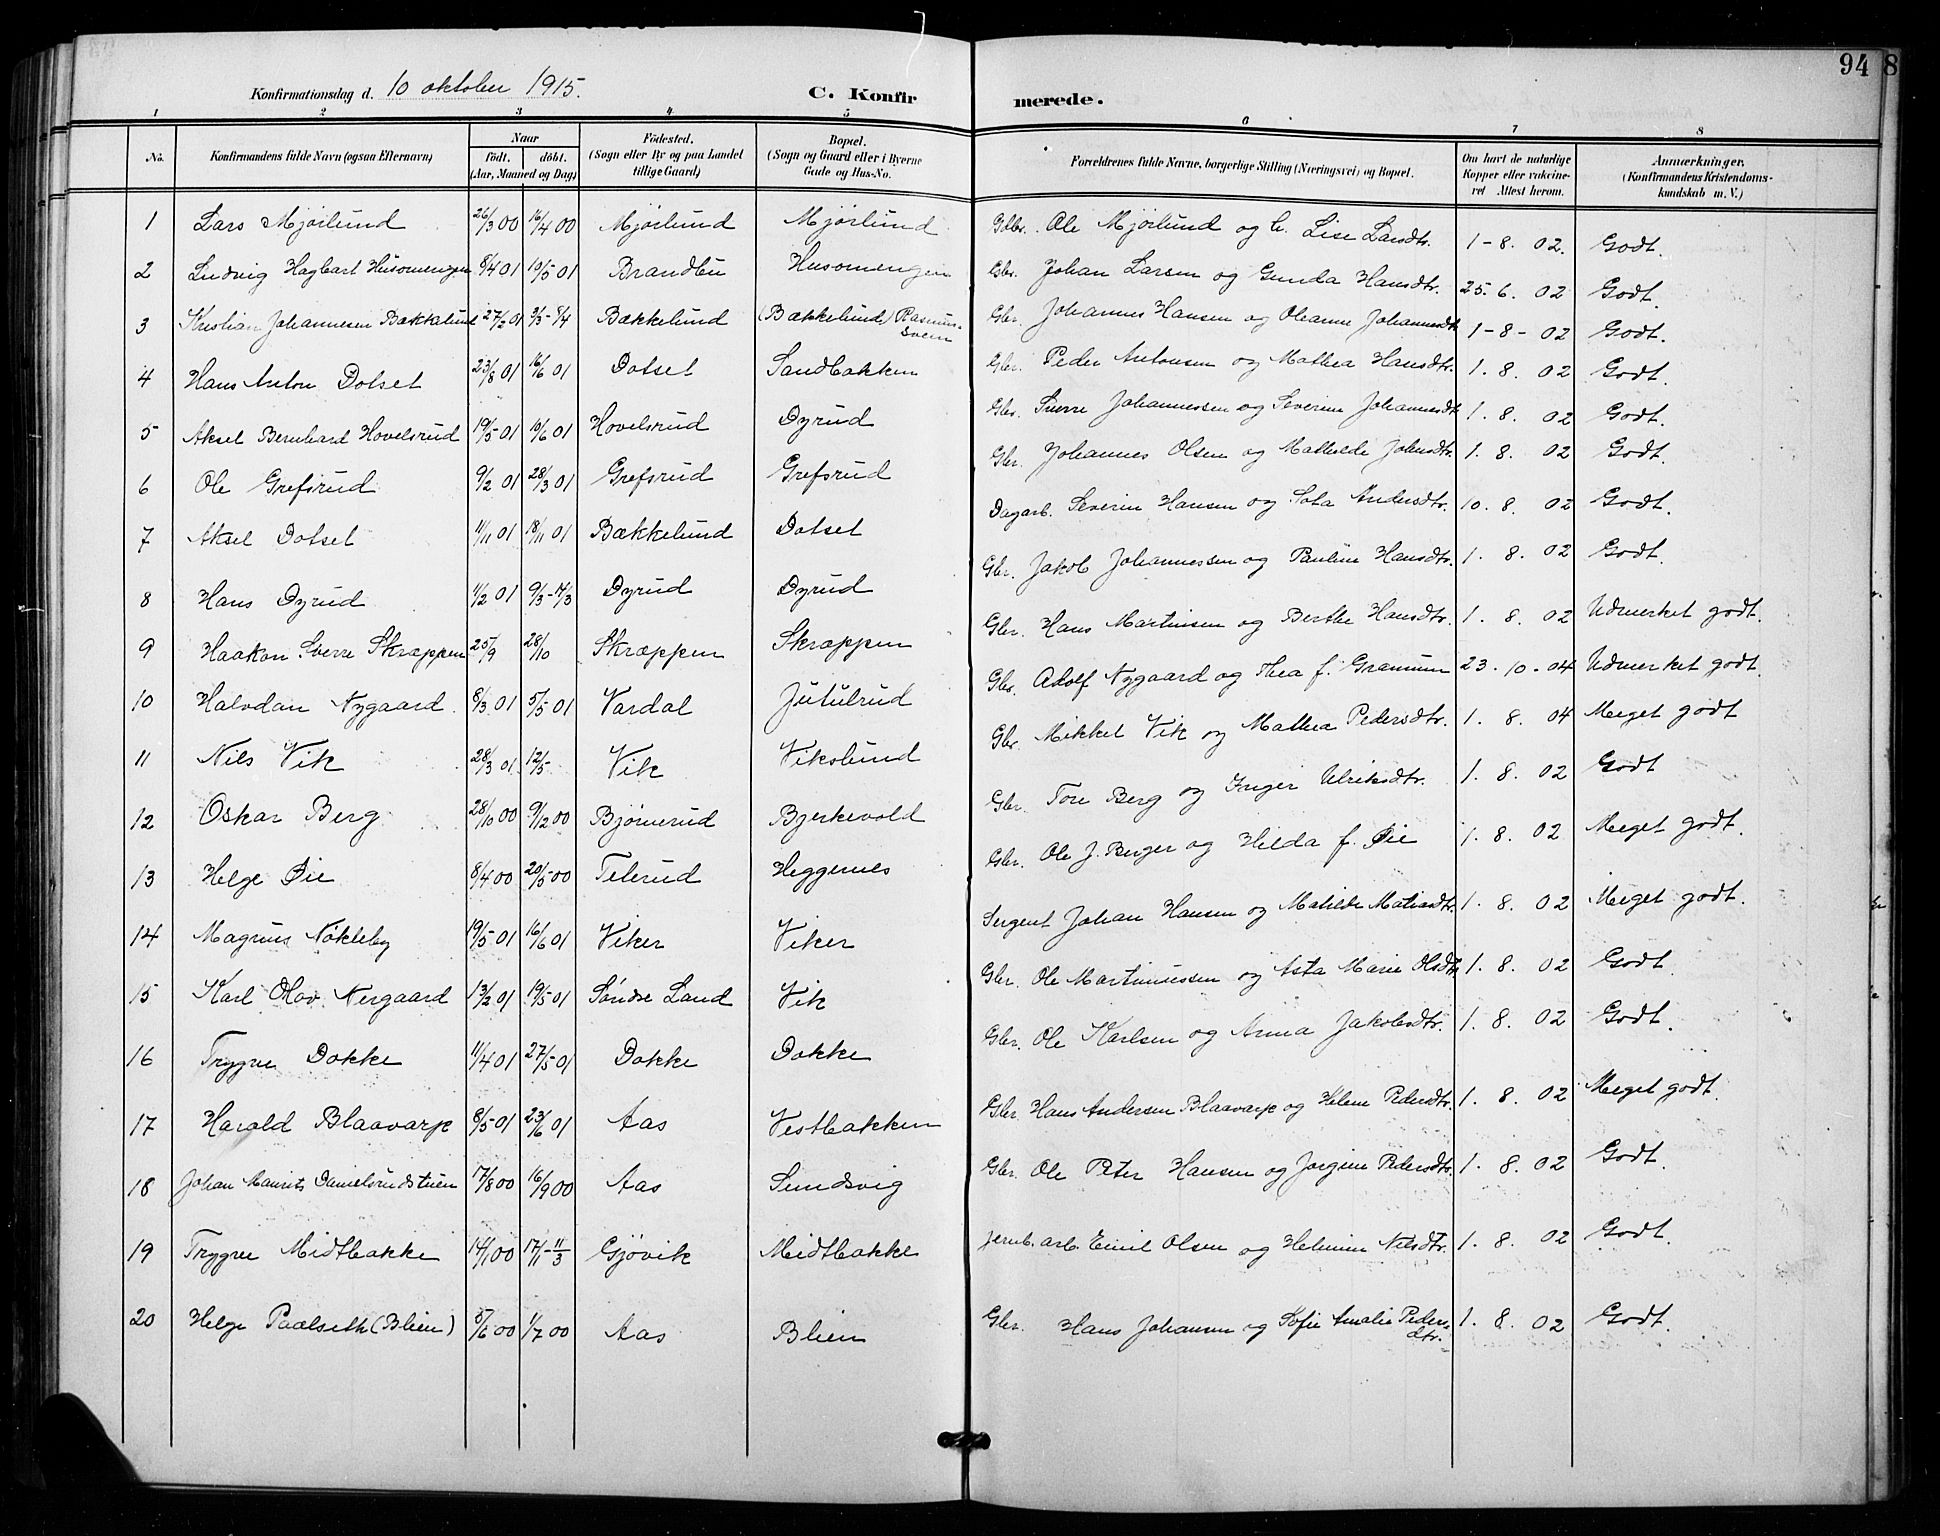 94 8
Konfirmationsdag d. 10 oktober 1915.
C. Konfirmerede.
1 2 3 4 5 6 7 8
No. | Konfirmandens fulde Navn (ogsaa Efternavn) | Naar födt. döbt. (Aar, Maaned og Dag) | Födested. (Sogn eller By og paa Landet tillige Gaard) | Bopæl. (Sogn og Gaard eller i Byerne Gade og Hus-No. | Forældrenes fulde Navne, borgerlige Stilling (Næringsvei) og Bopæl. | Om havt de naturlige Kopper eller vakvineret Attest herom. | Anmærkninger. (Konfirmandens Kristendomskundskab m. V.)
1 | Lars Mjörlund | 26/3 00 | 16/4 00 | Mjörlund | Mjörlund | Gbr. Ole Mjörlund og h. Lise Larsdtr. | 1-8. 02. | Godt.
2 | Ludvig Hagbart Husomengen | 8/4 01 | 19/5 01 | Brandbu | Husomengen | Gbr. Johan Larsen og Gunda Hansdtr. | 25. 6. 02 | Godt.
3 | Kristian Johannesen Bækkelund | 27/2 01 | 3/3 - 8/4 | Bækkelund | (Bækkelund) Rasmussveen | Gbr. Johannes Hansen og Oleanne Johannesdtr | 1-8-02 | Godt.
4 | Hans Anton Dotset | 23/8 01 | 16/6 01 | Dotset | Sandbakken | Gbr. Peder Antonsen og Mathea Hansdtr. | 1. 8. 02 | Godt.
5 | Aksel Bernhard Hovelsrud | 19/5 01 | 16/6 01 | Hovelsrud | Dyrud | Gbr. Sverre Johannessen og Severine Johannesdt | 1. 8. 02 | Godt.
6 | Ole Grefsrud | 9/2 01 | 28/3 01 | Grefsrud | Grefsrud | Gbr. Johannes Olsen og Mathilde Johnsdtr. | 1. 8. 02 | Godt.
7 | Aksel Dotset | 11/11 01 | 18/11 01 | Bækkelund | Dotset | Dagarb. Severin Hansen og Sota Andersdtr. | 10. 8. 02 | Godt.
8 | Hans Dyrud | 11/2 01 | 9/3 - 17/3 | Dyrud | Dyrud | Gbr. Jakob Johannessen og Pauline Hansdtr. | 1. 8. 02 | Godt.
9 | Haakon Sverre Skræppen | 25/9 | 28/10 | Skræppen | Skræppen | Gbr. Hans Martinsen og Berthe Hansdtr. | 1. 8. 02 | Udmerket godt.
10 | Halvdan Nygaard | 8/3 01 | 5/5 01 | Vardal | Jutulrud | Gbr. Adolf Nygaard og Thea f. Gramum | 23. 10. 04 | Udmerket godt.
11 | Nils Vik | 28/3 01 | 12/5 | Vik | Vikslund | Gbr. Mikkel Vik og Mathea Pedersdtr. | 1. 8. 04 | Meget godt
12 | Oskar Berg | 28/10 00 | 9/12 00 | Bjørnerud | Bjerkevold | Gbr. Tore Berg og Inger Ulriksdtr. | 1. 8. 02 | Godt
13 | Helge Øie | 8/4 00 | 20/5 00 | Telerud | Heggernes | Gbr. Ole J. Berger og Helda f. Øie | 1. 8. 02 | Meget godt.
14 | Magnus Nökleby | 19/5 01 | 16/6 01 | Viker | Viker | Sergent Johan Hansen og Matilde Matiasdtr. | 1. 8. 02 | Meget godt.
15 | Karl Olav Nergaard | 13/2 01 | 19/5 01 | Søndre Land | Vik | Gbr. Ole Martinussen og Asta Marie Olsdtr | 1. 8. 02 | Godt.
16 | Trygve Dokke | 11/4 01 | 27/5 01 | Dokke | Dokke | Gbr. Ole Karlsen og Anna Jakobsdtr. | 1. 8. 02 | Godt.
17 | Harald Blaavarp | 8/5 01 | 23/6 01 | Aas | Vestbakken | Gbr Hans Andersen Blaavarp og Helene Pedersdtr. | 1. 8. 02 | Meget godt.
18 | Johan Maurits Danielsrudstuen | 17/8 00 | 16/9 00 | Aas | Sundsvig | Gbr. Ole Peter Hansen og Jørgine Pedersdtr. | 1. 8. 02 | Godt.
19 | Trygve Midtbakke | 14/1 00 | 17/11 - 11/3 | Gjøvik | Midtbakke | Jernb. arb. Emil Olsen og Helmine Nilsdtr. | 1. 8. 02 | Godt.
20 | Helge Paalseth (Blien) | 5/6 00 | 1/7 00 | Aas | Blien | Gbr. Hans Johansen og Sofie Amalie Pedersdtr. | 1. 8. 02 | Godt.